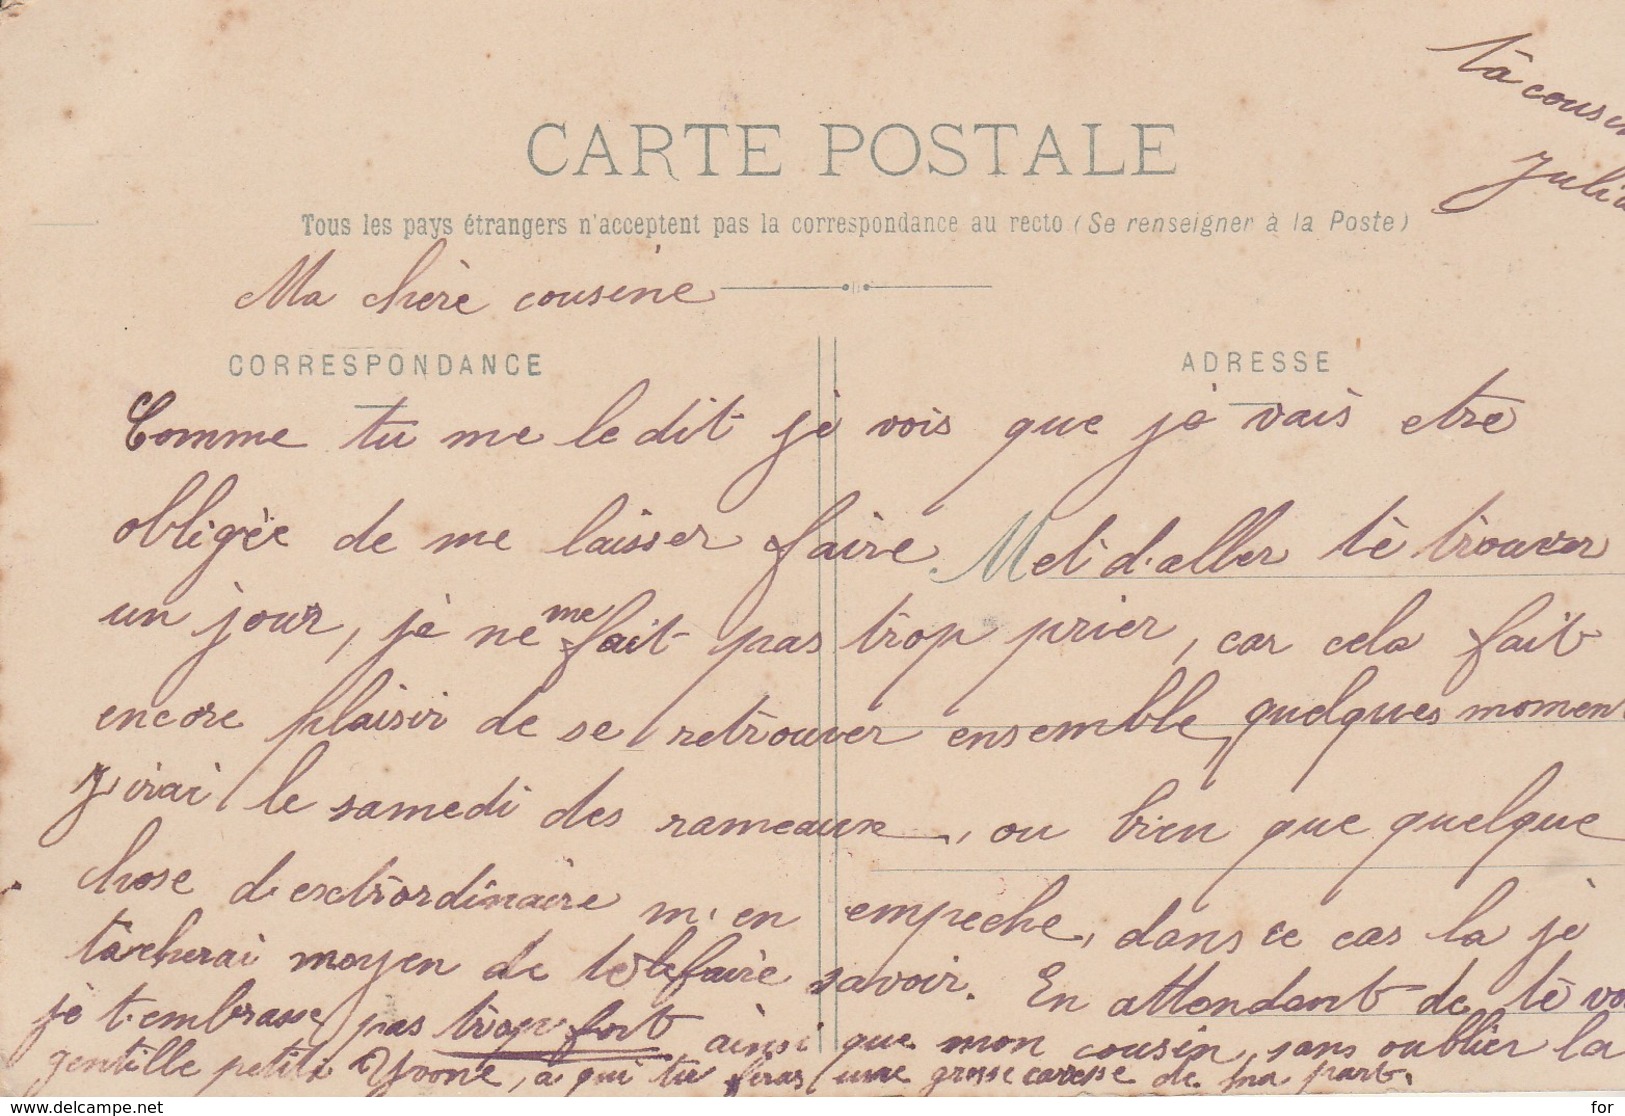 Ta cousin
Julia
CARTE POSTALE
Tous les pays étrangers n'acceptent pas la correspondance au recto (Se renseigner à la Poste)
Ma chère cousine
CORRESPONDANCE
ADRESSE
Comme tu me le dit je vois que je vais etre
obligée de me laisser faire. Met d'aller te trouver
un jour, je ne me fait pas trop prier, car cela fait
encore plaisir de se retrouver ensemble quelques momen
J'irai le samedi des rameaux, ou bien que quelque
chose d'extrordinaire m'en empeche, dans ce cas la je
tacherai moyen de te le faire savoir. En attendant de te vo
je t'embrasse pas trop fort ainsi que mon cousin, sans oublier la
gentille petite Yvone, a qui tu feras une grosse caresse de ma part.
www.delcampe.net
for